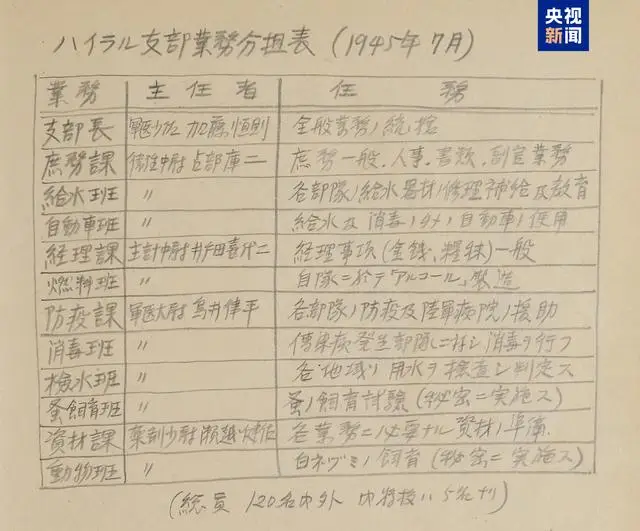 央视
新闻
ハイラル支部業務分担表 (1945年7月)
業務 主任者 任務
支部長 軍医少佐 加藤恒則 全般業務ノ統轄
庶務課 衛生中尉 占部庫二 庶務一般、人事、書類、副官業務
給水班 〃 各部隊ノ給水器材ノ修理補給及教育
自動車班 〃 給水及消毒ノタメノ自動車ノ使用
経理課 主計中尉 井田喜代二 経理事項(金銭、糧秣)一般
燃料班 〃 自隊ニ於テ「アルコール」製造
防疫課 軍医大尉 鳥井律平 各部隊ノ防疫及陸軍病院ノ援助
消毒班 〃 傳染病発生部隊ニ対シ消毒ヲ行フ
檢水班 〃 各地域ノ用水ヲ検査シ判定ス
蚤飼育班 〃 蚤ノ飼育試験(秘密ニ実施ス)
資材課 薬剤少尉 瀬越健佐 各業務ニ必要ナル資材ノ準備
動物班 〃 白ネヅミノ飼育(秘密ニ実施ス)
(総員 120名内外 内将校ハ5名ナリ)